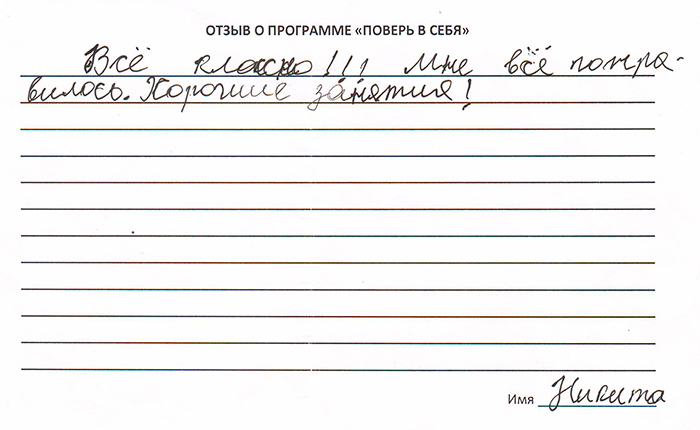 ОТЗЫВ О ПРОГРАММЕ «ПОВЕРЬ В СЕБЯ»
Всё классно!!! Мне всё понра-
вилось. Хорошие занятия!
Имя Никита